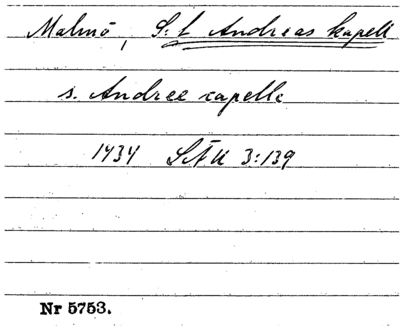 Malmö, S:t Andreas kapell
s. Andree capelle
1434 SÅU 3:139
Nr 5753.